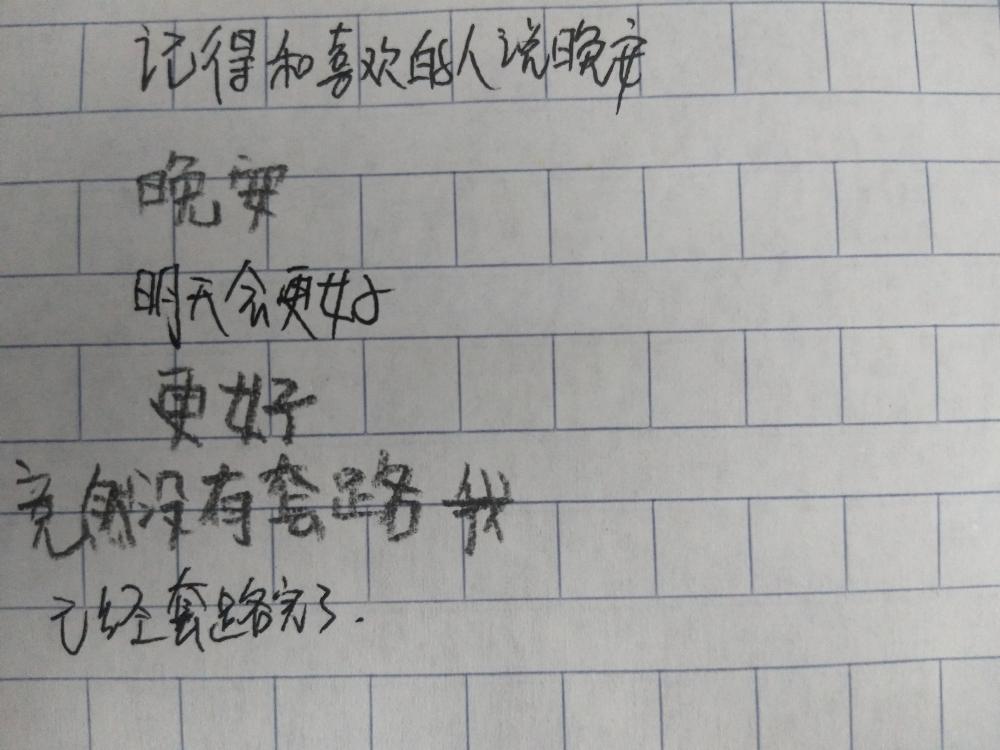 记得和喜欢的人说晚安
晚安
明天会更好
更好
竟然没有套路我
已经套路完了.